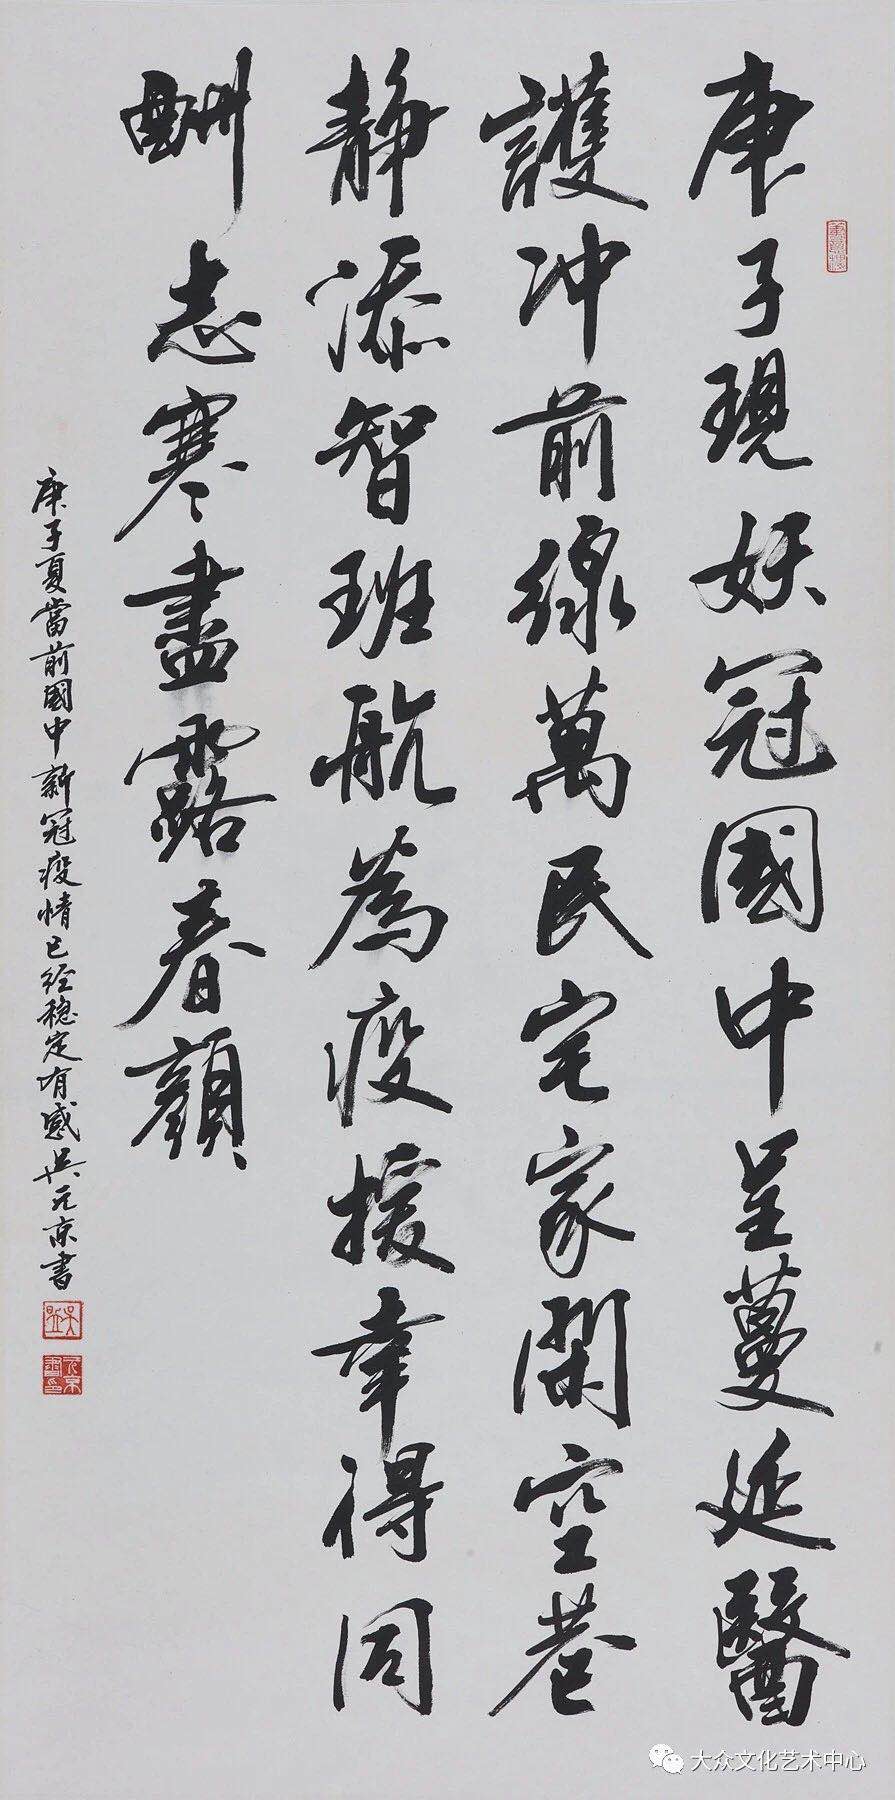 庚子現妖冠國中呈蔓延醫
護冲前線萬民宅家閑空巷
靜添智班航為疫援幸得同
酬志寒盡露春顏
庚子夏當前國中新冠疫情已经穩定有感吴元京書
大众文化艺术中心